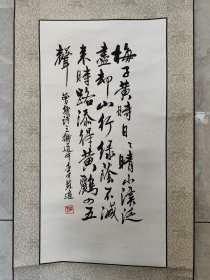 梅子黃時日々晴小溪泛
盡却山行綠蔭不減
来時路添得黃鸝四五
聲
曾幾詩三衢道中